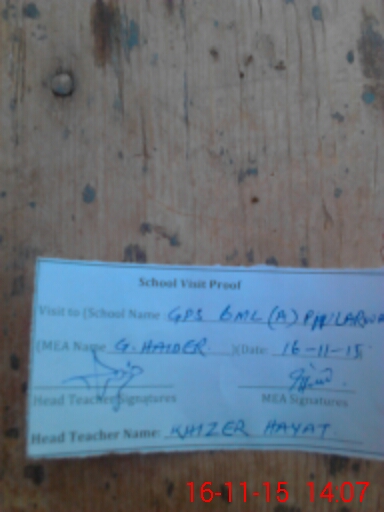 School Visit Proof
Visit to (School Name GPS 6ML (A)
(MEA Name G. HAIDER )(Date: 16-11-15
Head Teacher Signatures MEA Signatures
Head Teacher Name: KHIZER HAYAT
16-11-15 14:07